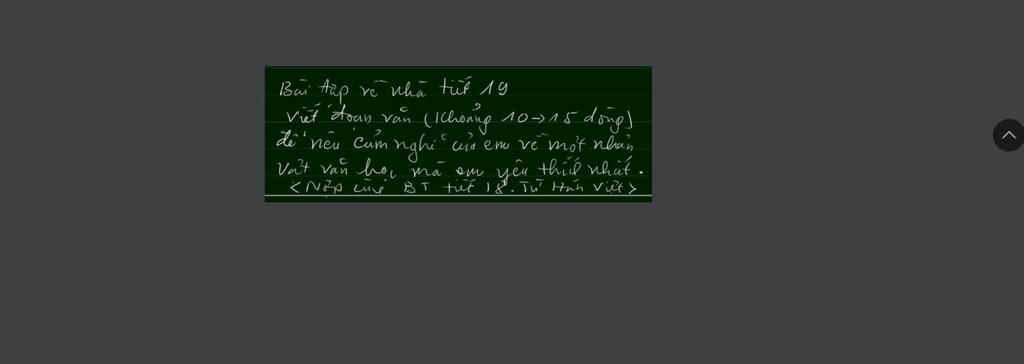 Bài tập về nhà tiết 19
Viết đoạn văn (khoảng 10→15 dòng)
để nêu cảm nghĩ của em về một nhân
vật văn học mà em yêu thích nhất.
<Nộp cùng BT tiết 18. Từ Hán Việt>